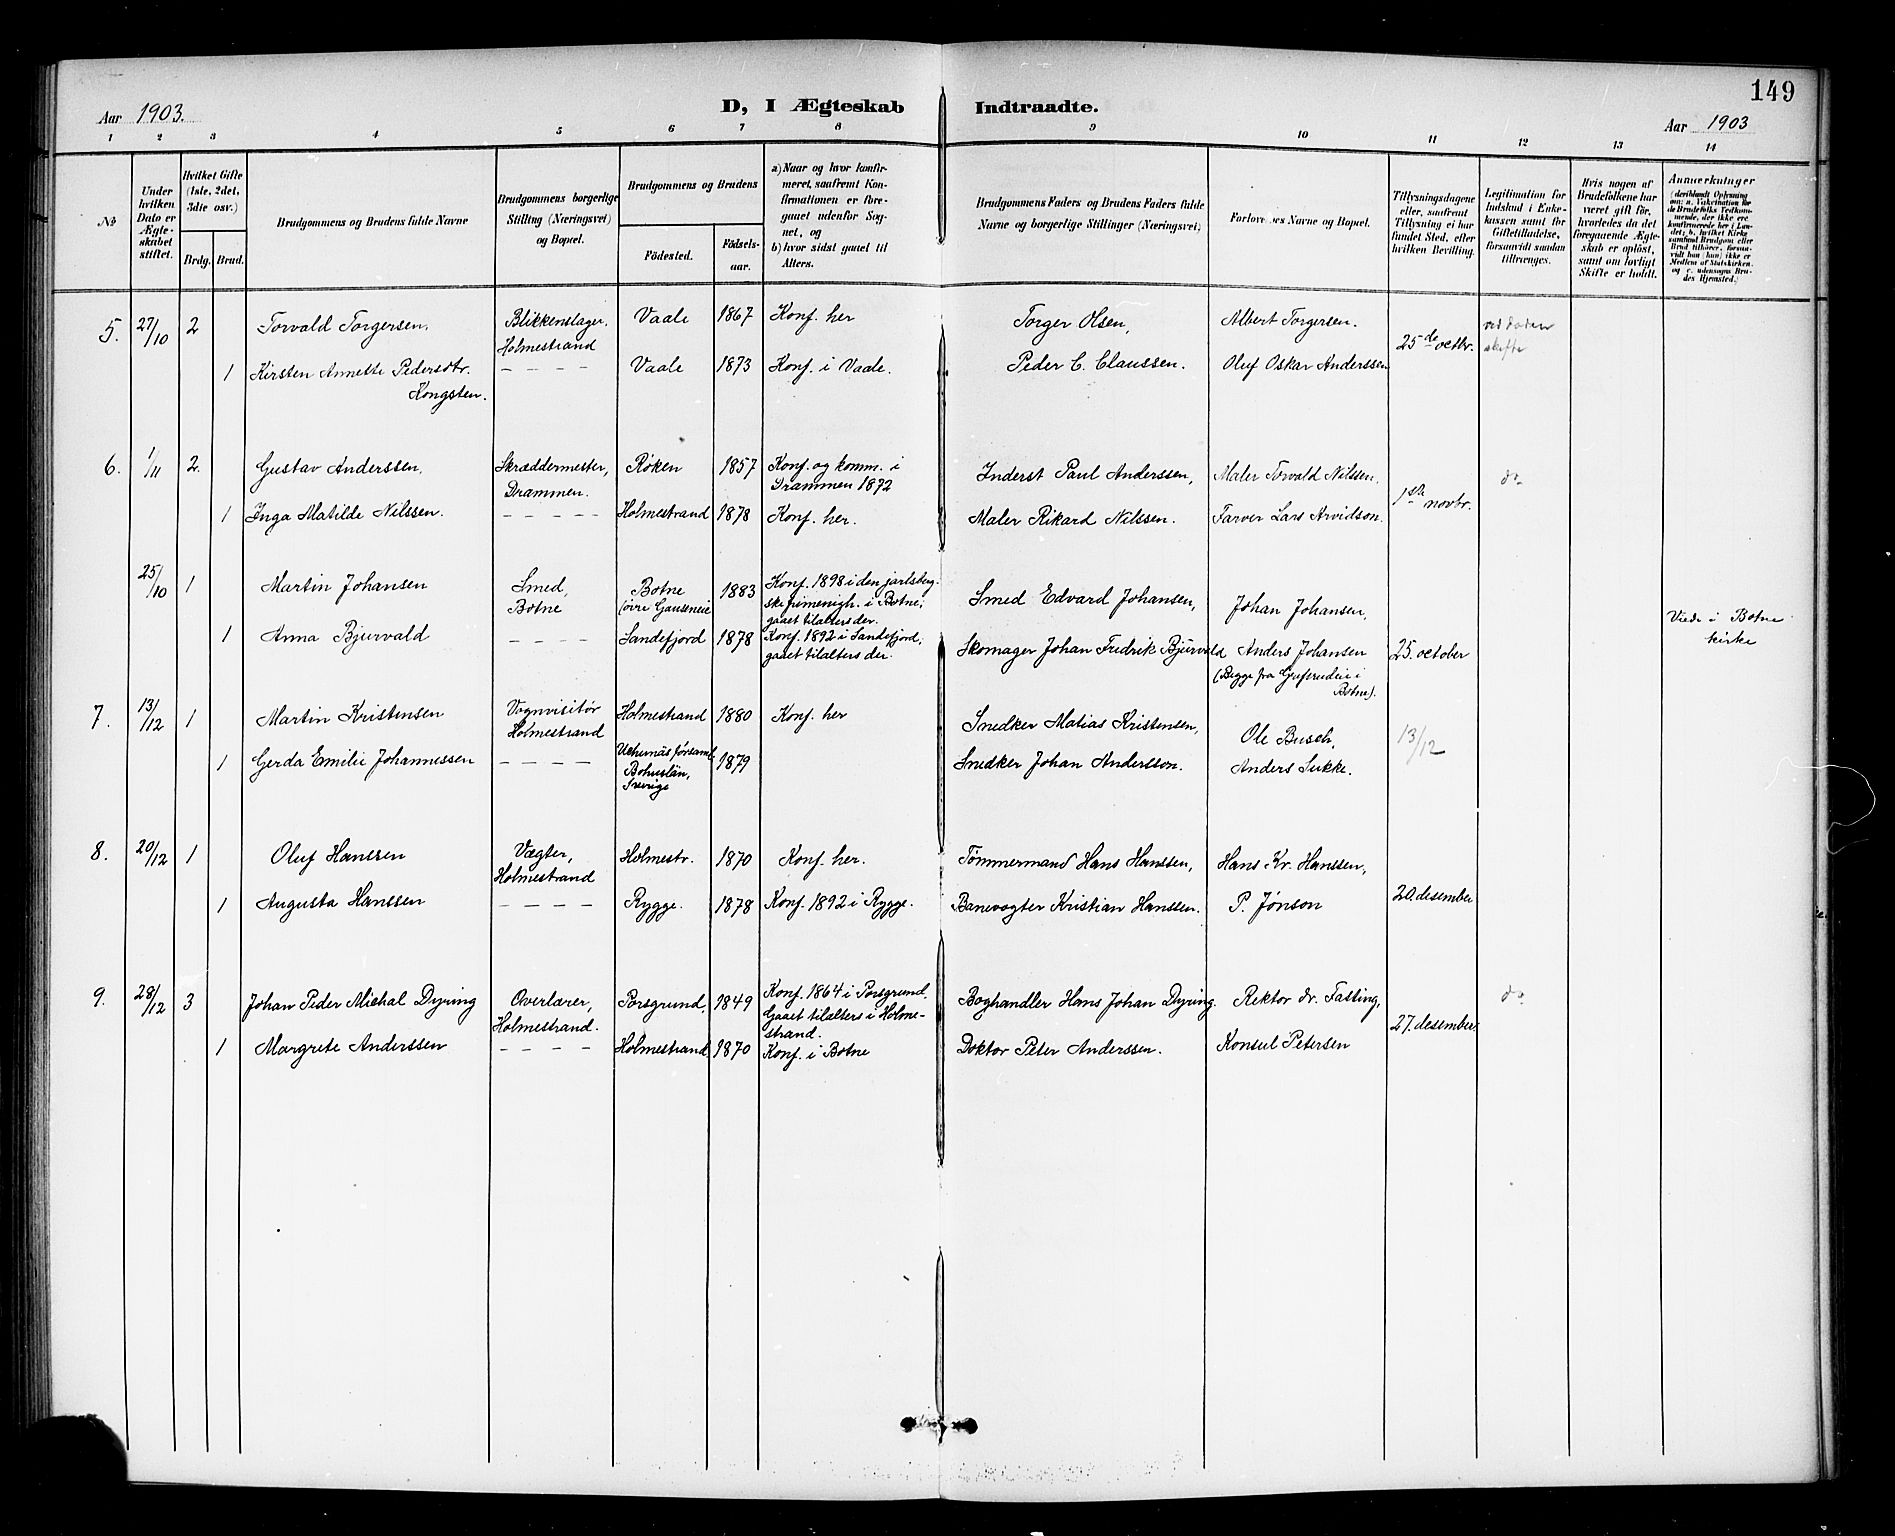 149
Aar 1903.
D, I Ægteskab Indtraadte.
Aar 1903
1 2 3 4 5 6 7 8 9 10 11 12 13 14
No
Under hvilken Dato er Ægteskabet stiftet.
Hvilket Gifte (1ste, 2det, 3die osv.)
Brdg. Brud.
Brudgommens og Brudens fulde Navne
Brudgommens borgerlige Stilling (Næringsvei) og Bopæl.
Brudgommens og Brudens
Födested.
Födselsaar.
a) Naar og hvor konfirmeret, saafremt Konfirmationen er foregaaet udenfor Sognet, og
b) hvor sidst gaaet til Alters.
Brudgommens Faders og Brudens Faders fulde Navne og borgerlige Stillinger (Næringsvei)
Forlovernes Navne og Bopæl.
Tillysningsdagene eller, saafremt Tillysning ei har fundet Sted, efter hvilken Bevilling.
Legitimation for Indskud i Enkekassen samt for Giftetilladelse, forsaavidt saadan tiltrænges.
Hvis nogen af Brudefolkene har været gift før, hvorledes da det foregaaende Ægteskab er opløst, samt om lovligt Skifte er holdt.
Anmerkninger
(deriblandt Oplysning om: a. Vakcination for de Brudefolks Vedkommende, der ikke ere konfirmerede her i Landet; b. hvilket Kirkesamfund Brudgom eller Brud tilhører, forsaavidt han (hun) ikke er Medlem af Statskirken, og c. udensogns Brudes Hjemsted.)
5. 27/10 2 Torvald Torgersen, Blikkenslager, Holmestrand Vaale 1867 Konf. her Torger Olsen, Albert Torgersen. 25de octbr. ved døden skifte
1 Kirsten Annette Pedersdtr. Kongsten. – – – – Vaale 1873 Konf. i Vaale. Peder C. Claussen. Oluf Oskar Anderssen
6. 1/11 2. Gustav Anderssen, Skræddermester, Drammen. Røken 1857 Konf. og komm. i Drammen 1872 Inderst Paul Anderssen, Maler Torvald Nilssen. 1ste novbr. do
1 Inga Matilde Nilssen. – – – – Holmestrand 1878 Konf. her. Maler Rikard Nilssen. Farver Lars Arvidson.
25/10 1 Martin Johansen Smed, Botne Botne (øvre Gauseneie 1883 Konf. 1898 i den jarlsbergske frimenigh. i Botne; gaaet tilalters der. Smed Edvard Johansen, Johan Johansen, Viede i Botne kirke
1 Anna Bjurvald – – – – Sandefjord 1878 Konf. 1892 i Sandefjord, gaaet tilalters der. Skomager Johan Fredrik Bjurvald Anders Johansen (Begge fra i Botne). 25. october
7. 13/12 1 Martin Kristensen Vognvisitør Holmestrand Holmestrand 1880 Konf. her Snedker Matias Kristensen, Ole Busch, 13/12
1 Gerda Emilie Johannessen – – – – førsaml. Bohuslän, Sverige 1879 Snedker Johan Andersson. Anders Sukke.
8. 20/12 1 Oluf Hanssen Vægter, Holmestrand Holmestr. 1870 Konf. her. Tømmermand Hans Hanssen, Hans Kr. Hanssen, 20. desember
1 Augusta Hanssen – – – – Rygge. 1878 Konf. 1892 i Rygge. Banevogter Kristian Hanssen. P. Jónson
9. 28/12 3 Johan Peder Michal Dyring Overlærer, Holmestrand. Porsgrund, 1849 Konf. 1864 i Porsgrund. Gaaet tilalters i Holmestrand. Boghandler Hans Johan Dyring. Rektor dr. Fasting, 27. desember do
1 Margrete Anderssen – – – – Holmestrand 1870 Konf. i Botne Doktor Peter Anderssen. Konsul Petersen